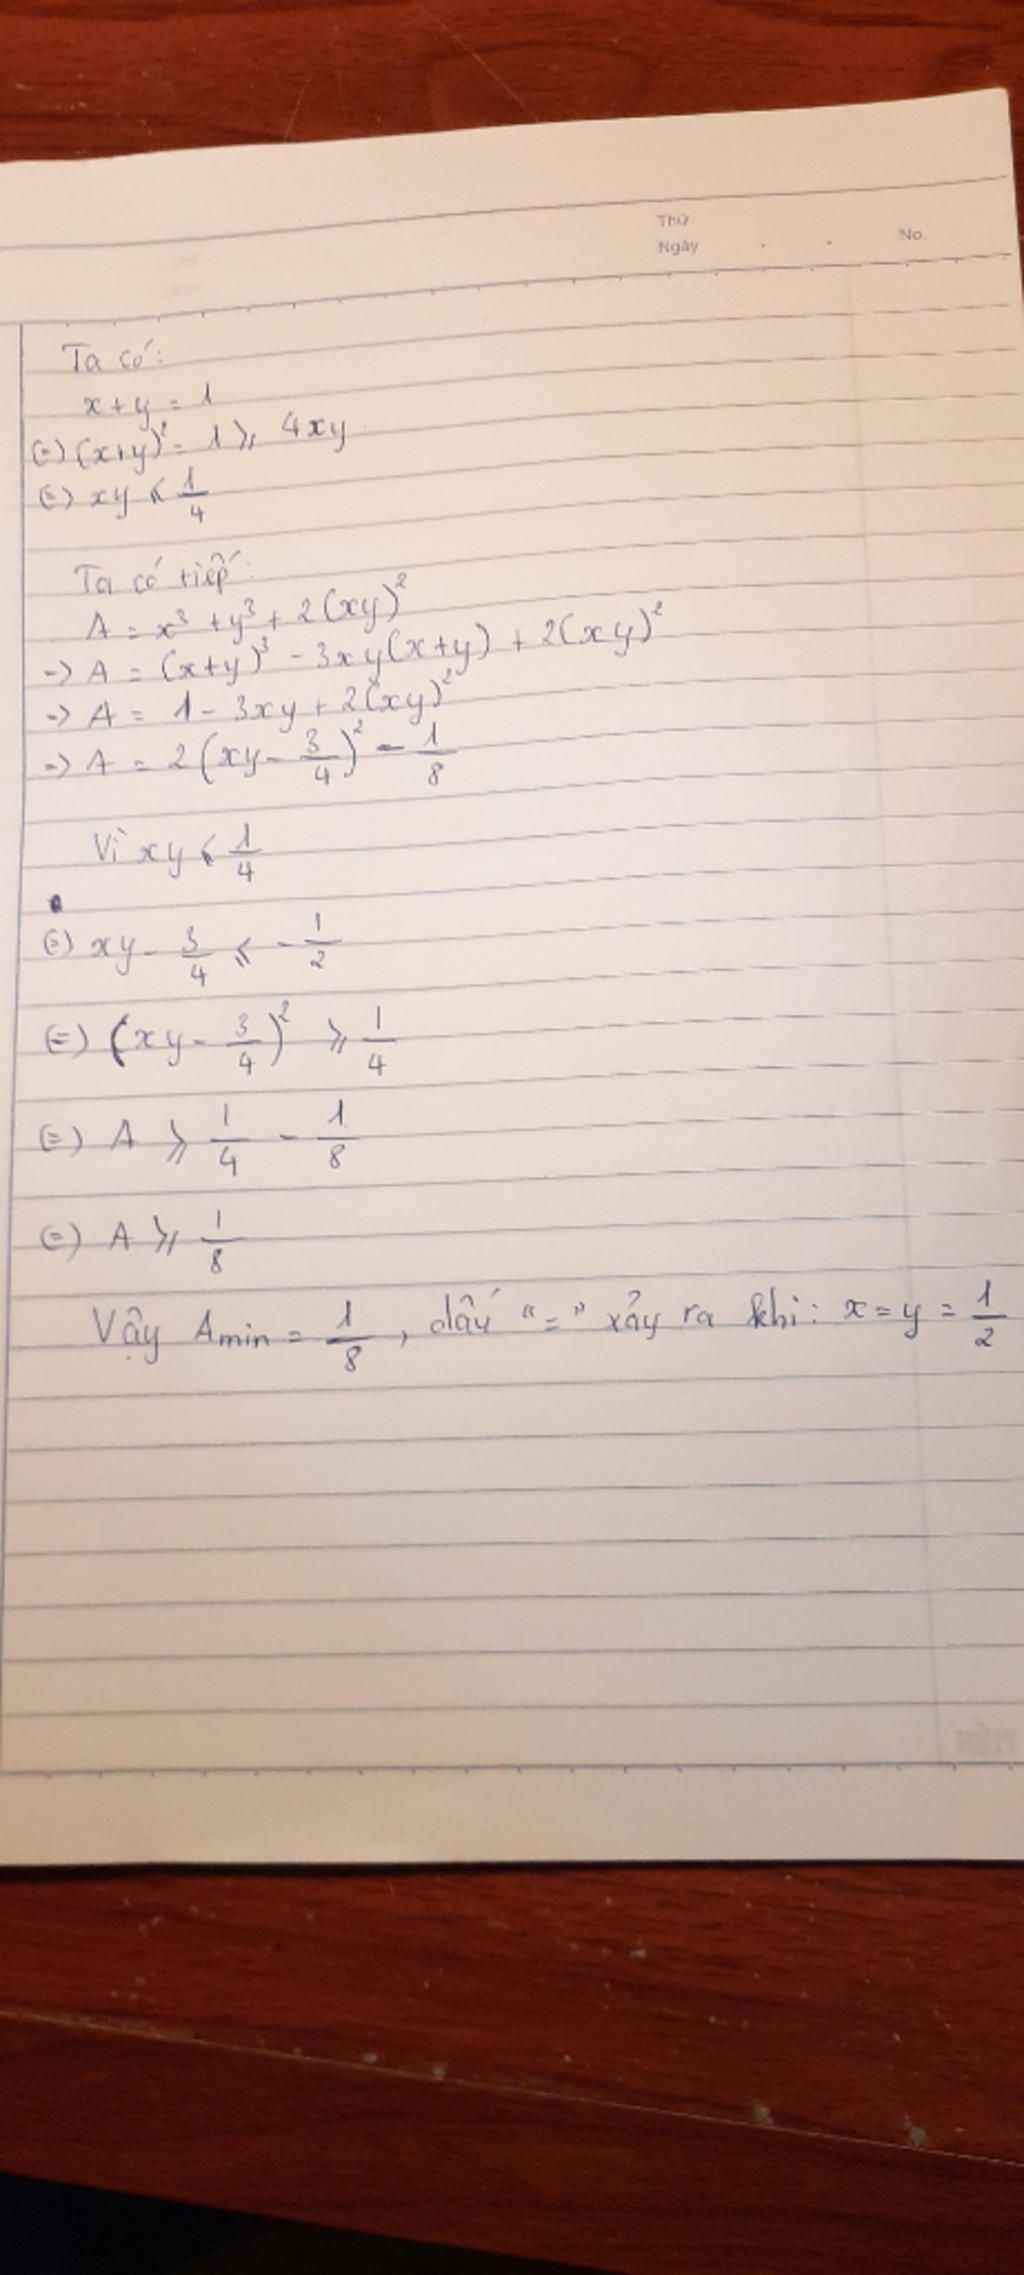 Thứ
Ngày . . No.
Ta có:
x + y = 1
(=) (x+y)² = 1 ⩾ 4xy
(=) xy ⩽ 1/4
Ta có tiếp:
A = x³ + y³ + 2(xy)²
-> A = (x+y)³ - 3xy(x+y) + 2(xy)²
-> A = 1 - 3xy + 2(xy)²
-> A = 2(xy - 3/4)² - 1/8
Vì xy ⩽ 1/4
(=) xy - 3/4 ⩽ - 1/2
(=) (xy - 3/4)² ⩾ 1/4
(=) A ⩾ 1/4 - 1/8
(=) A ⩾ 1/8
Vậy Amin = 1/8, dấu "=" xảy ra khi: x = y = 1/2